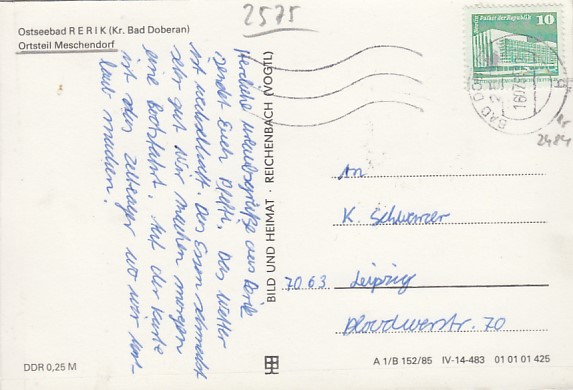 2575
Ostseebad RERIK (Kr. Bad Doberan)
Ortsteil Meschendorf
Herzliche Urlaubsgrüße aus Rerik
sendet Euch Steffi. Das Wetter
ist wechselhaft. Das Essen schmeckt
sehr gut. Wir machen morgen
eine Bootsfahrt. Auf der Karte
ist das Zeltlager wo wir
Urlaub machen.
BILD UND HEIMAT · REICHENBACH (VOGTL)
Berlin Palast der Republik
10
DDR
BAD DOB
An
K. Schwarzer
7063 Leipzig
str. 70
2484
DDR 0,25 M
A 1/B 152/85 IV-14-483 01 01 01 425